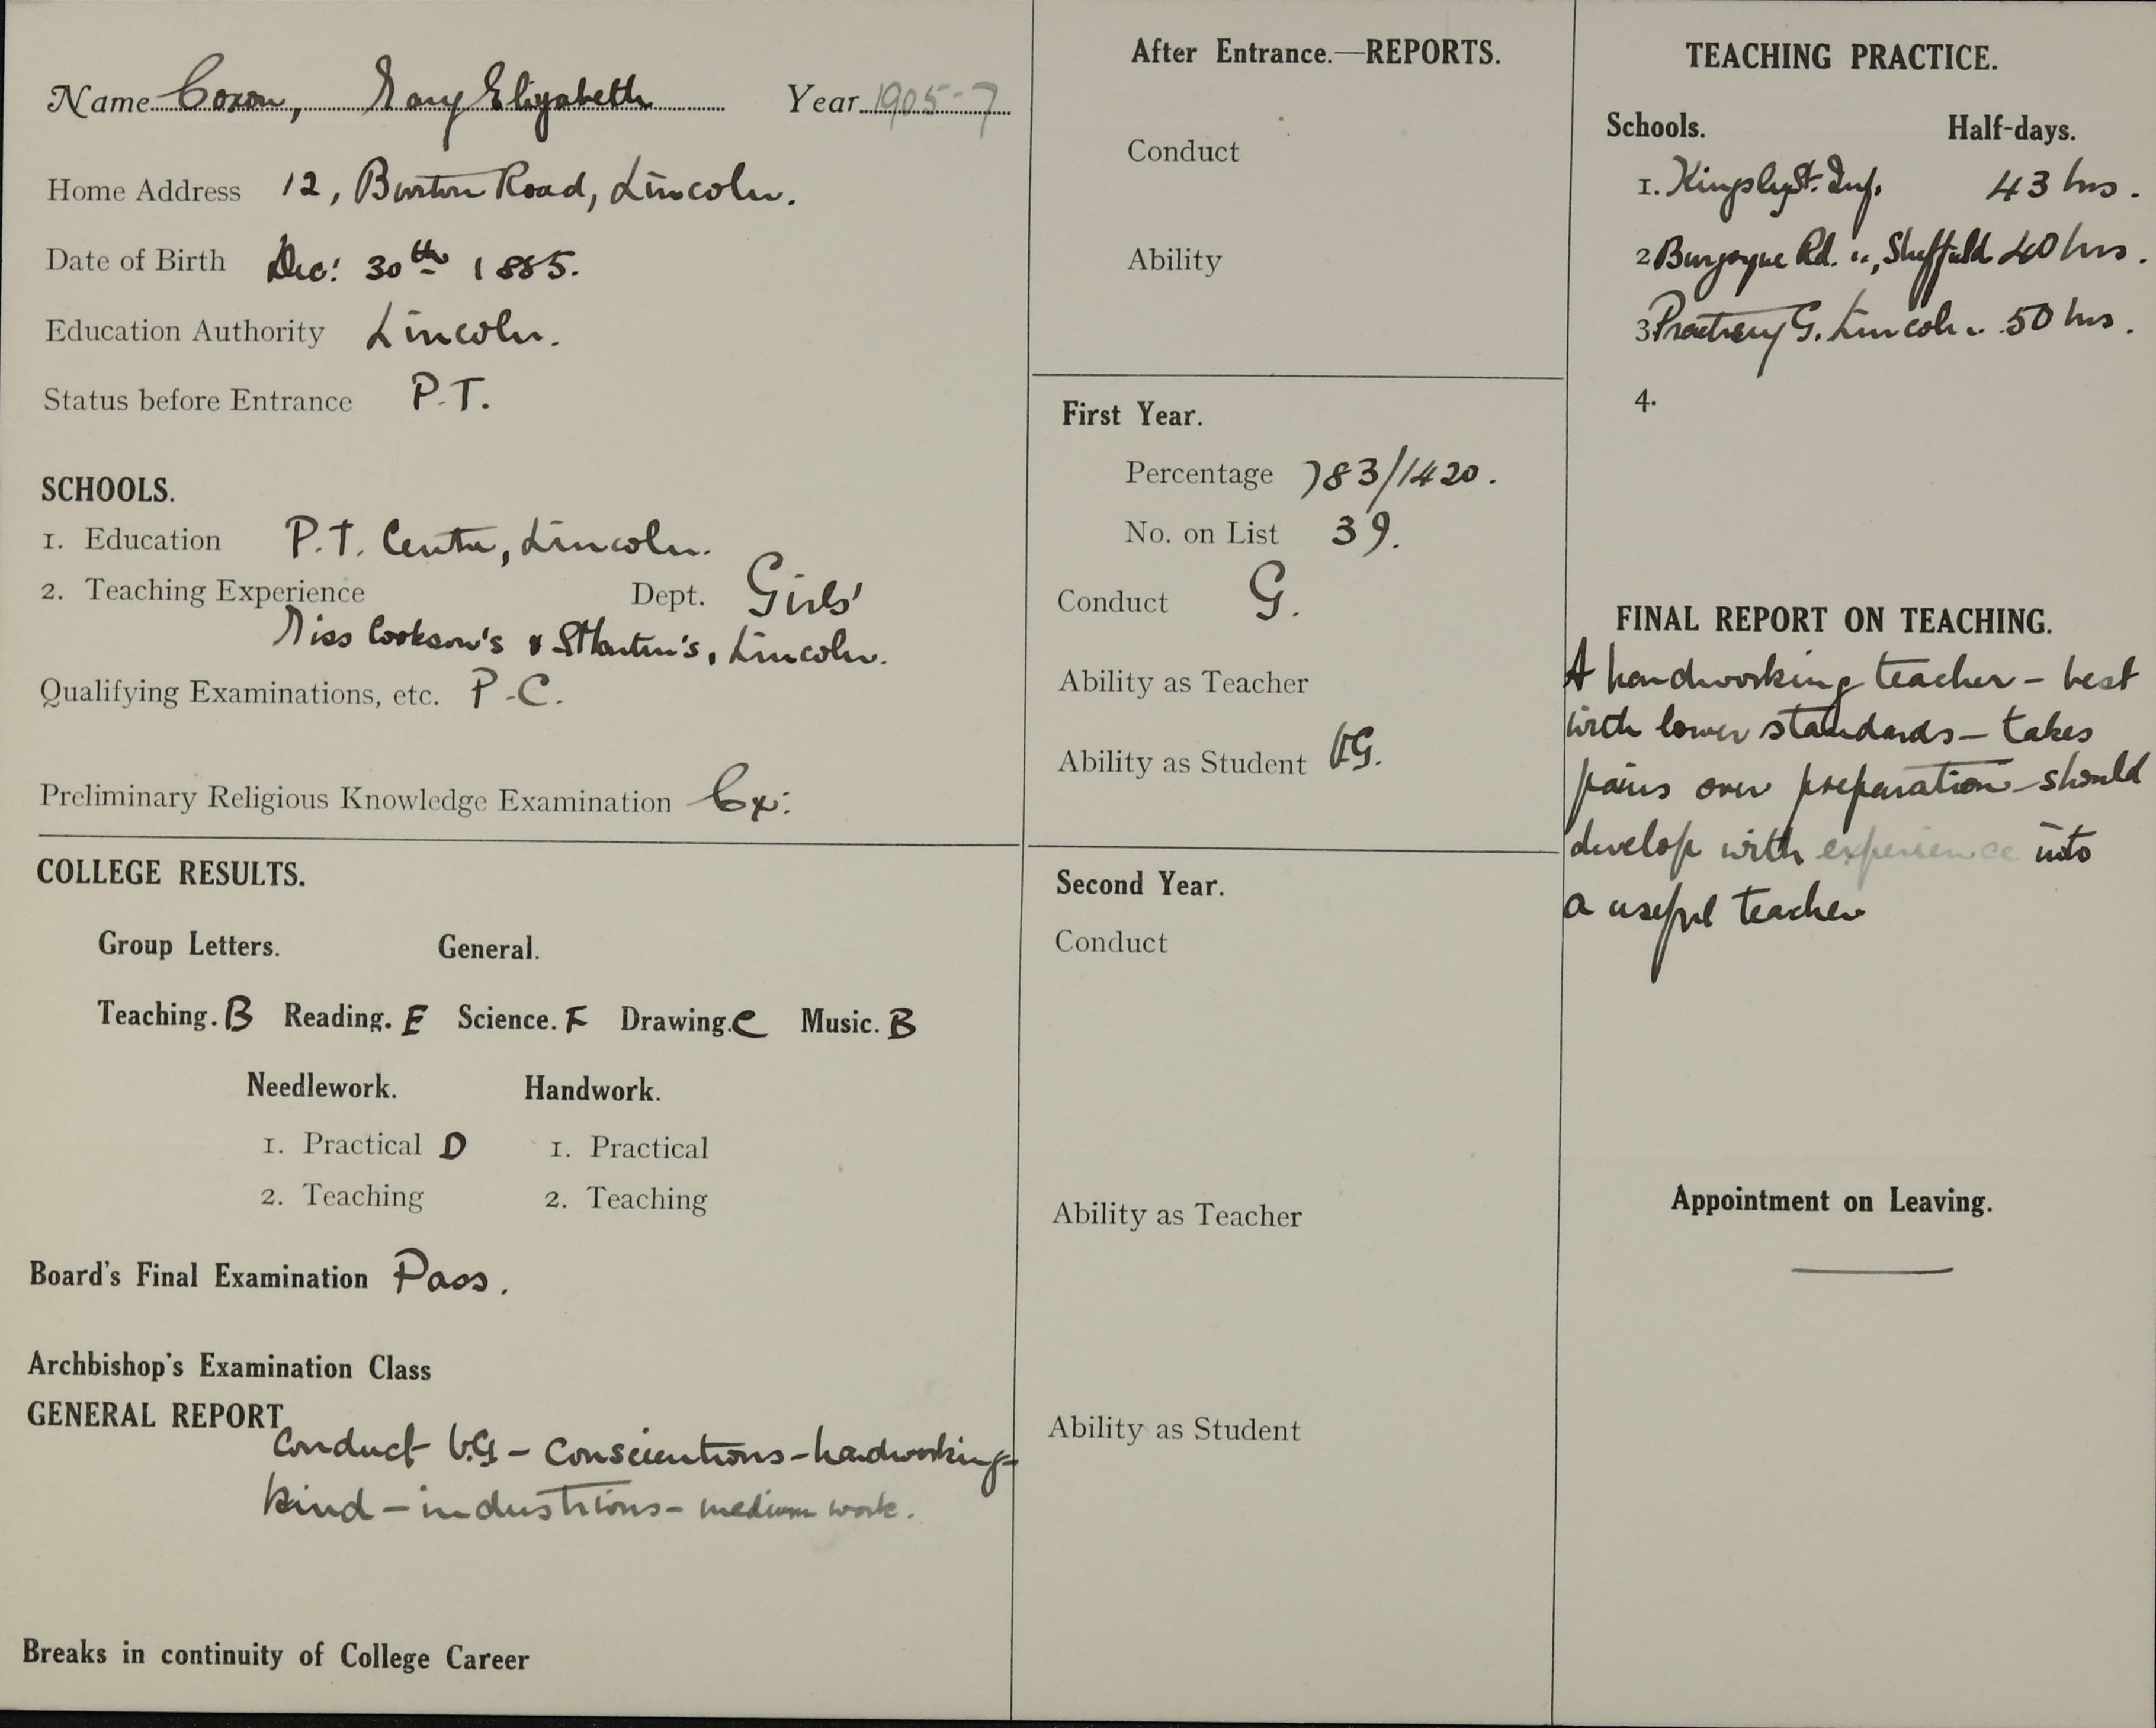 Name Coxon, Mary Elizabeth Year 1905-7
Home Address 12, Burton Road, Lincoln.
Date of Birth Dec: 30th 1885.
Education Authority Lincoln.
Status before Entrance P.T.
SCHOOLS.
1. Education P.T. Centre, Lincoln.
2. Teaching Experience Dept. Girls'
Miss Cookson's & St Martin's, Lincoln.
Qualifying Examinations, etc. P.C.
Preliminary Religious Knowledge Examination Ex:
COLLEGE RESULTS.
Group Letters. General.
Teaching. B Reading. E Science. F Drawing. C Music. B
Needlework. Handwork.
1. Practical D 1. Practical
2. Teaching 2. Teaching
Board's Final Examination Pass.
Archbishop's Examination Class
GENERAL REPORT
Conduct V.G – Conscientious – hardworking –
kind – industrious – medium work.
Breaks in continuity of College Career
After Entrance.—REPORTS.
Conduct
Ability
First Year.
Percentage 783/1420.
No. on List 39.
Conduct G.
Ability as Teacher
Ability as Student VG.
Second Year.
Conduct
Ability as Teacher
Ability as Student
TEACHING PRACTICE.
Schools. Half-days.
1. Kingsley St. Inf. 43 hrs.
2 Burgoyne Rd. ", Sheffield 40 hrs.
3 G. Lincoln. 50 hrs.
4.
FINAL REPORT ON TEACHING.
A hardworking teacher – best
with lower standards – takes
pains over preparation – should
develop with experience into
a useful teacher
Appointment on Leaving.